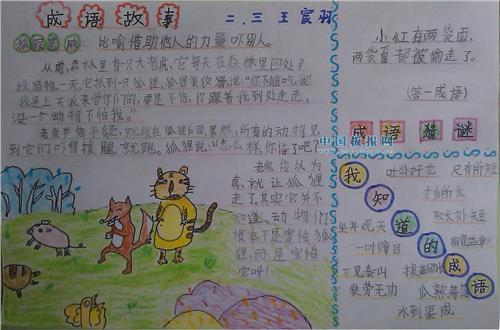 成语故事
二.三 王宸羽
狐假虎威：比喻借助他人的力量吓别人。
从前，森林里有只大老虎，它每天在森林里四处寻
找猎物。一天，它抓到一只狐狸，狐狸狡猾
我是上天派来管你们的，要是不信，你跟着我到处走走，
没一个动物不怕我。"
老虎
它们吓得拔腿就跑。狐狸说："怎么样，信了吧？"
老虎信以为
真，就让狐狸
走了。其实它并不
知道，动物们
根本不是害怕狐
狸，而是害怕
它呀！
小红有两袋面，
两袋面都被偷走了。
(答一成语)
成语猜谜
中国板报网
我知道的成语
叶公好龙
尺有所短
寸有所长
取长补短
坐井观天
一叶障目
不见泰山
拔苗助长
徒劳无功
瓜熟蒂落
水到渠成